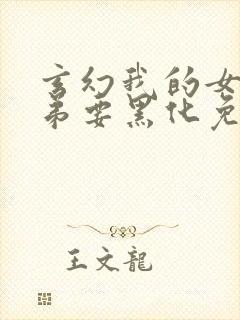 玄幻我的女
弟要黑化免
王文龍